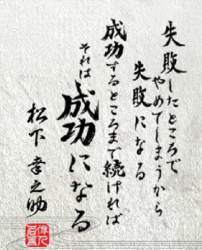 失敗したところで
やめてしまうから
失敗になる
成功するところまで続ければ
それは
成功になる
松下幸之助